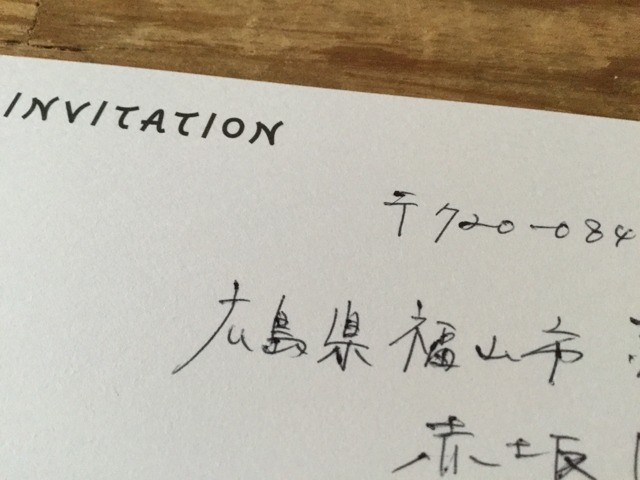 INVITATION
〒720-084
広島県福山市
赤坂